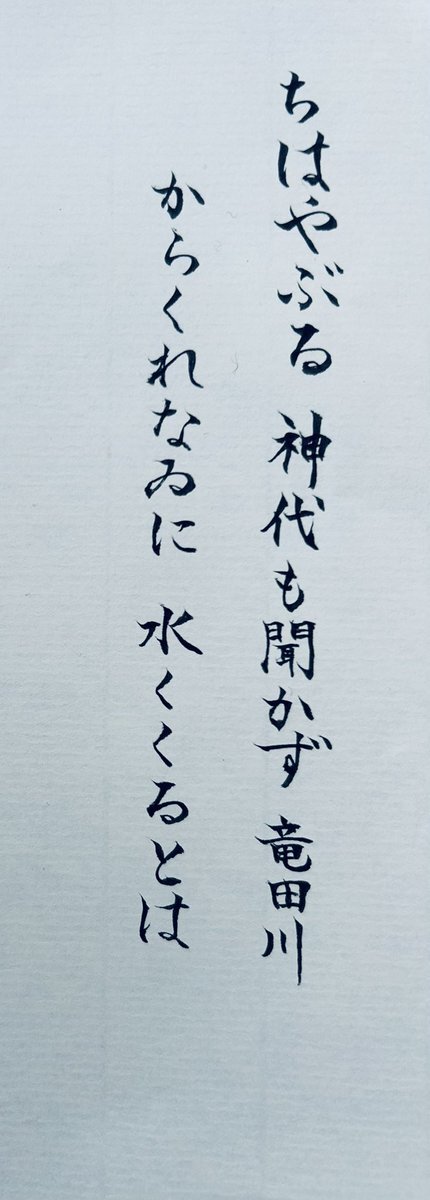 ちはやぶる 神代も聞かず 竜田川
からくれなゐに 水くくるとは